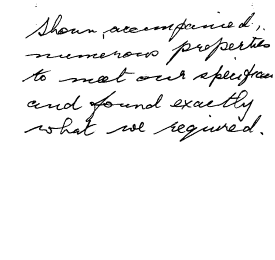 Shown, accompanied,
numerous properties
to meet our
and found exactly
what we required.